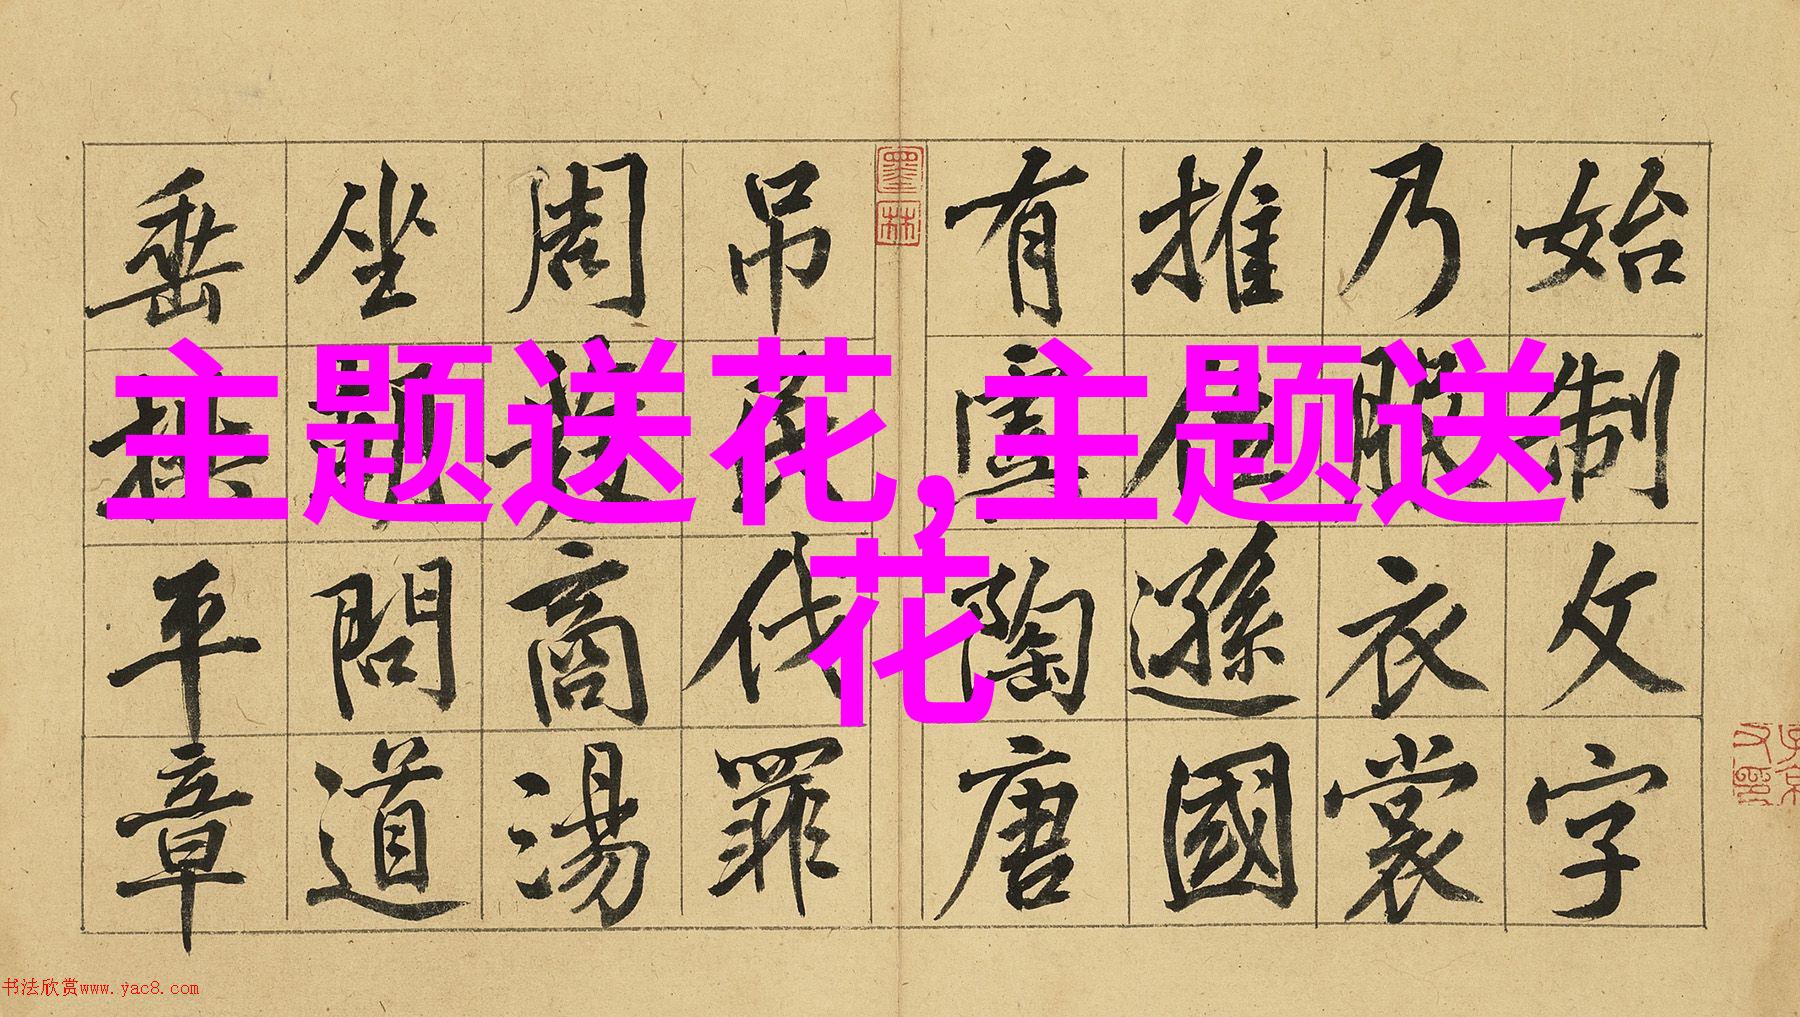 主题送花,主题送
花
始制文字
乃服衣裳
推位遜國
有虞陶唐
墨林
吊民伐罪
周發商湯
坐朝問道
垂拱平章
书法欣赏www.yac8.com